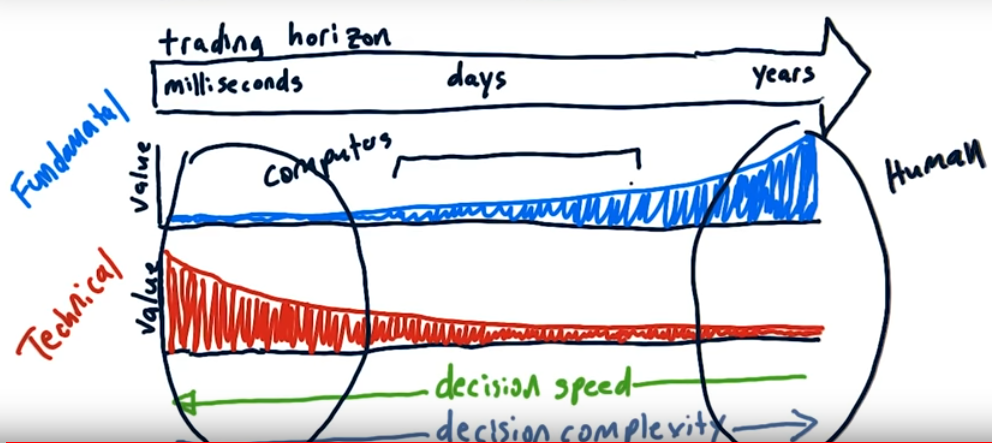 trading horizon
milliseconds days years
Fundamatal
value
computers
Human
Technical
value
decision speed
decision complexity